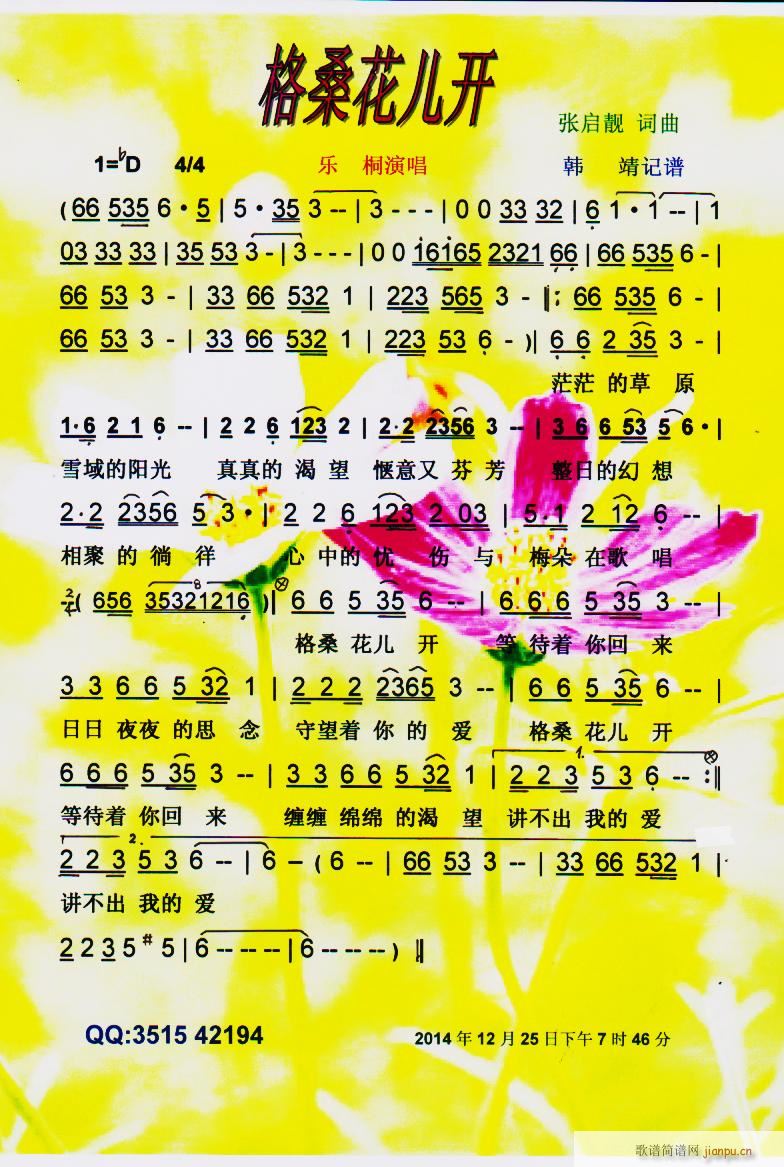 格桑花儿开
张启靓 词曲
1=♭D 4/4 乐 桐演唱 韩 靖记谱
( 66 535 6 · 5 | 5 · 35 3 -- | 3 - - - | 0 0 33 32 | 6 1 · 1 -- | 1
03 33 33 | 35 53 3 - | 3 - - - | 0 0 16165 2321 66 | 66 535 6 - |
66 53 3 - | 33 66 532 1 | 223 565 3 - ‖: 66 535 6 - |
66 53 3 - | 33 66 532 1 | 223 53 6 - ) | 6 6 2 35 3 - |
茫茫 的草 原
1·6 2 1 6 -- | 2 2 6 123 2 | 2·2 2356 3 -- | 3 6 6 53 5 6· |
雪域的阳光 真真的 渴 望 惬意又 芬 芳 整日的幻 想
2·2 2356 5 3· | 2 2 6 123 2 03 | 5·1 2 12 6 -- |
相聚 的 徜 徉 心 中的 忧 伤 与 梅朵 在歌 唱
2/4 ( 656 35321216 ) | 6 6 5 35 6 -- | 6 6 6 5 35 3 -- |
8
格桑 花儿 开 等 待着 你回 来
3 3 6 6 5 32 1 | 2 2 2 2365 3 -- | 6 6 5 35 6 -- |
日日 夜夜 的思 念 守望着 你 的 爱 格桑 花儿 开
1.
6 6 6 5 35 3 -- | 3 3 6 6 5 32 1 | 2 2 3 5 3 6 -- :‖
等待着 你回 来 缠缠 绵绵 的渴 望 讲不出 我的 爱
2.
2 2 3 5 3 6 -- | 6 – ( 6 -- | 66 53 3 -- | 33 66 532 1 |
讲不出 我的 爱
2 2 3 5 # 5 | 6 -- -- -- | 6 -- -- -- ) ‖
QQ:3515 42194 2014 年 12 月 25 日下午 7 时 46 分
歌谱简谱网 jianpu.cn